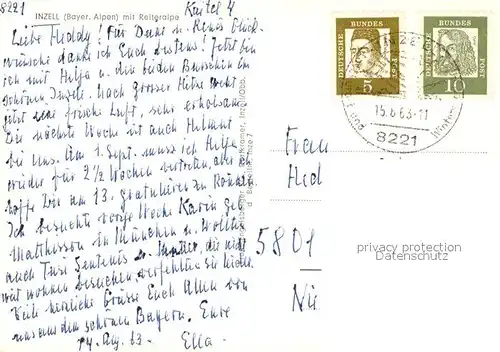 8221
Kaitel 4
INZELL (Bayer. Alpen) mit Reitgralpe
Liebe Heddy! Für Deine u. Renés Glück-
wünsche danke ich Euch bestens! Jetzt bin
ich mit Helga u. den beiden Burschen im
schönen Inzell. Nach grosser Hitze weht
jetzt eine frische Luft, sehr erholsam.
Die nächste Woche ist auch Helmut
bei uns. Am 1. Sept. muss ich Helga
wieder für 2 1/2 Wochen vertreten, aber
hoffe Dir am 13. gratulieren zu können
Ich besuchte vorige Woche Karin geb.
Matthesson in München u. wollte
auch Tusi u. Mutter, die nicht
weit wohnen besuchen, verfehlte sie leider.
Viele herzliche Grüsse Euch Allen von
uns aus dem schönen Bayern. Eure
14. Aug. 63. Ella.
DEUTSCHE BUNDESPOST
5
DEUTSCHE BUNDESPOST
10
INZELL
15.8.63-11
8221
Frau
Hed
5801
Nie
privacy protection
Datenschutz